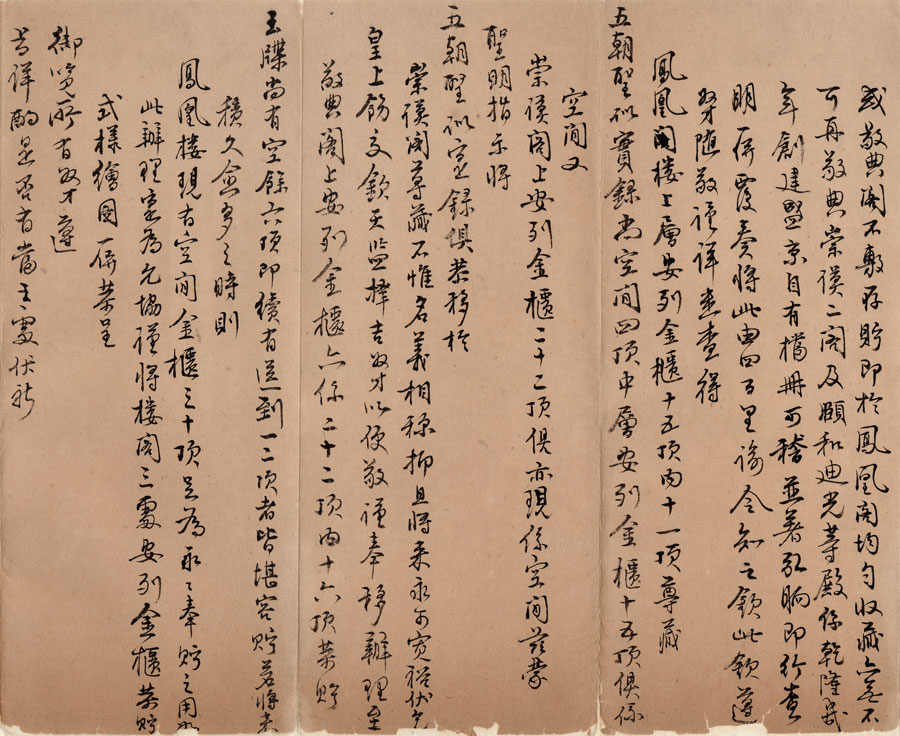 或敬典閣不敷存貯即於鳳凰閣均勻收藏亦無不
可再敬典崇謨二閣及頤和迪光等殿係乾隆幾
年創建盛京自有檔冊可稽並著弘晌即行查
明併覆奏將此由四百里諭令知之欽此欽遵
奴才隨敬謹詳悉查得
鳳凰閣樓上層安列金櫃十五頂內十一頂尊藏
五朝聖訓實錄尚空閒四頂中層安列金櫃十五頂俱係
空閒又
崇謨閣上安列金櫃二十二頂俱亦現係空閒茲蒙
聖明指示將
五朝聖訓實錄俱恭移於
崇謨閣尊藏不惟名義相稱抑且將來永可寬裕伏乞
皇上飭交欽天監擇吉奴才以便敬謹奉移辦理至
敬典閣上安列金櫃亦係二十二頂內十六頂恭貯
玉牒尚有空餘六頂即續有送到一二項者皆堪容貯若將來
積久愈多之時則
鳳凰樓現有空閒金櫃三十頂足為永遠奉貯之用
此辦理實為允協謹將樓閣三處安列金櫃恭貯
式樣繪圖一併恭呈
御覽所有奴才遵
旨詳酌是否有當之處伏祈